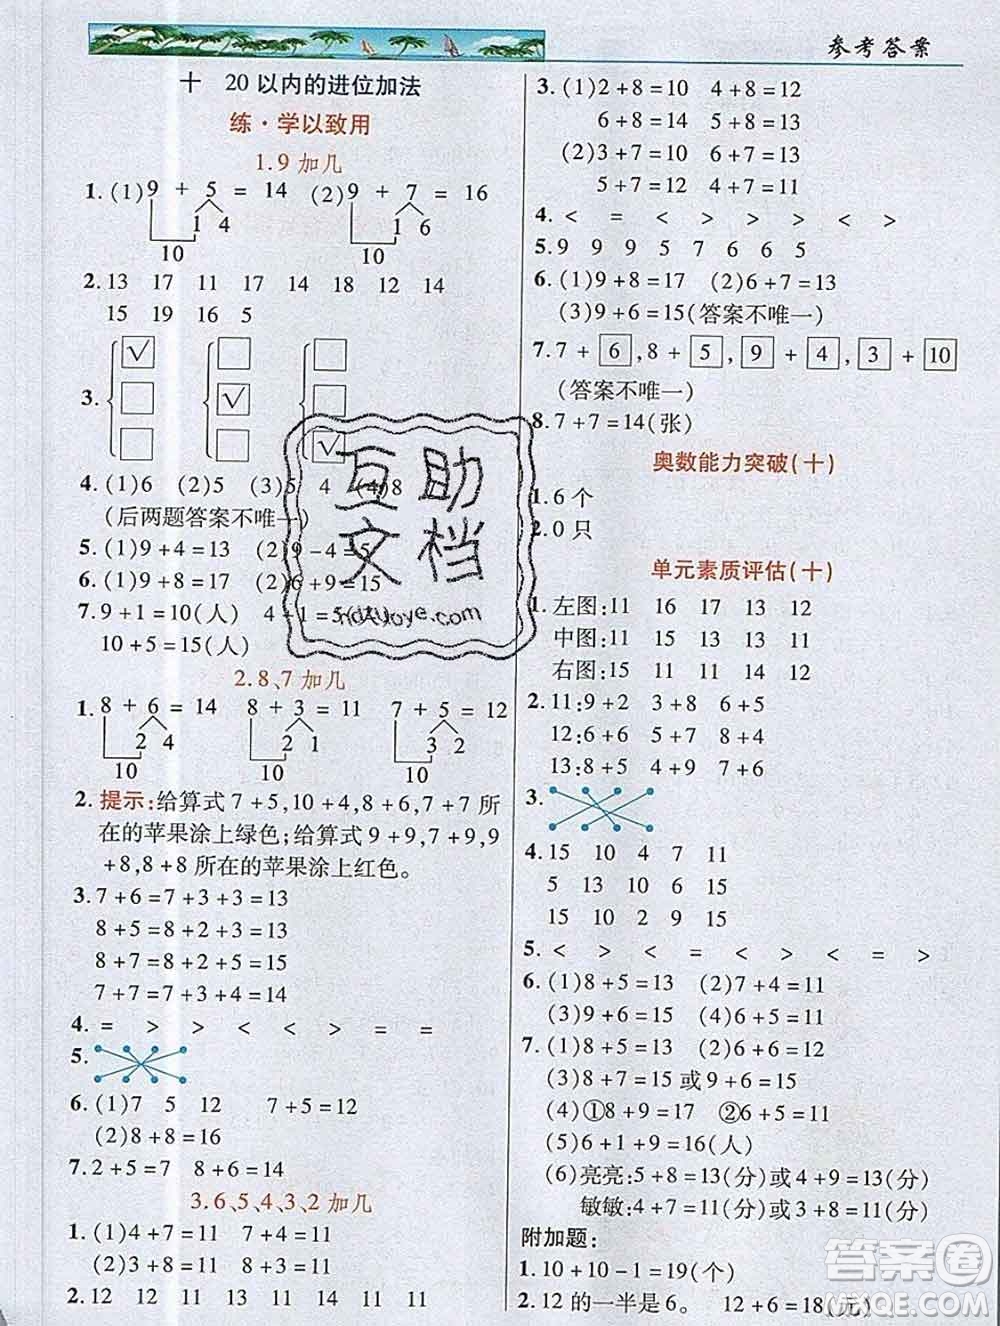 参考答案
十 20以内的进位加法
练·学以致用
1.9加几
1.(1)9 + 5 = 14 (2)9 + 7 = 16
1 4 1 6
10 10
2. 13 17 11 17 14 18 12 14
15 19 16 5
√
3. √
√
4. (1)6 (2)5 (3)5 4 (4)8
(后两题答案不唯一)
5. (1)9+4=13 (2)9-4=5
6. (1)9+8=17 (2)6+9=15
7. 9+1=10(人) 4+1=5
10+5=15(人)
2.8、7加几
1. 8 + 6 = 14 8 + 3 = 11 7 + 5 = 12
2 4 2 1 3 2
10 10 10
2. 提示:给算式7+5,10+4,8+6,7+7所
在的苹果涂上绿色;给算式9+9,7+9,9
+8,8+8所在的苹果涂上红色。
3. 7+6=7+3+3=13
8+5=8+2+3=13
8+8=8+2+6=16
7+7=7+3+4=14
4. = > > < < > = =
5.
6. (1)7 5 12 7+5=12
(2)8+8=16
7. 2+5=7 8+6=14
3.6、5、4、3、2加几
1. (1)4+7=11 7+4=11
(2)3+8=11 8+3=11
2. 12 12 11 11 13 11 11 11
3. (1)2+8=10 4+8=12
6+8=14 5+8=13
(2)3+7=10 6+7=13
5+7=12 4+7=11
4. < = < > > > < >
5. 9 9 9 5 7 6 6 5
6. (1)9+8=17 (2)6+7=13
(3)9+6=15(答案不唯一)
7. 7+6,8+5,9+4,3+10
(答案不唯一)
8. 7+7=14(张)
奥数能力突破(十)
1. 6个
2. 0只
单元素质评估(十)
1. 左图:11 16 17 13 12
中图:11 15 13 13 11
右图:15 11 11 15 12
2. 11:9+2 3+8 6+5
12:6+6 5+7 8+4
13:8+5 4+9 7+6
3.
4. 15 10 4 7 11
5 13 10 5 15
15 10 2 9 15
5. < > < = > > < = >
6. (1)8+5=13 (2)7+4=11
(3)9+3=12 (4)6+5=11
7. (1)8+5=13 (2)6+6=12
(3)8+7=15或9+6=15
(4)①8+9=17 ②6+5=11
(5)6+1+9=16(人)
(6)亮亮:5+8=13(分)或4+9=13(分)
敏敏:4+7=11(分)或3+8=11(分)
附加题:
1. 10+10-1=19(个)
2. 12的一半是6。 12+6=18(元)
互助
文档
hdzuoye.com
答案圈
MXQE.COM